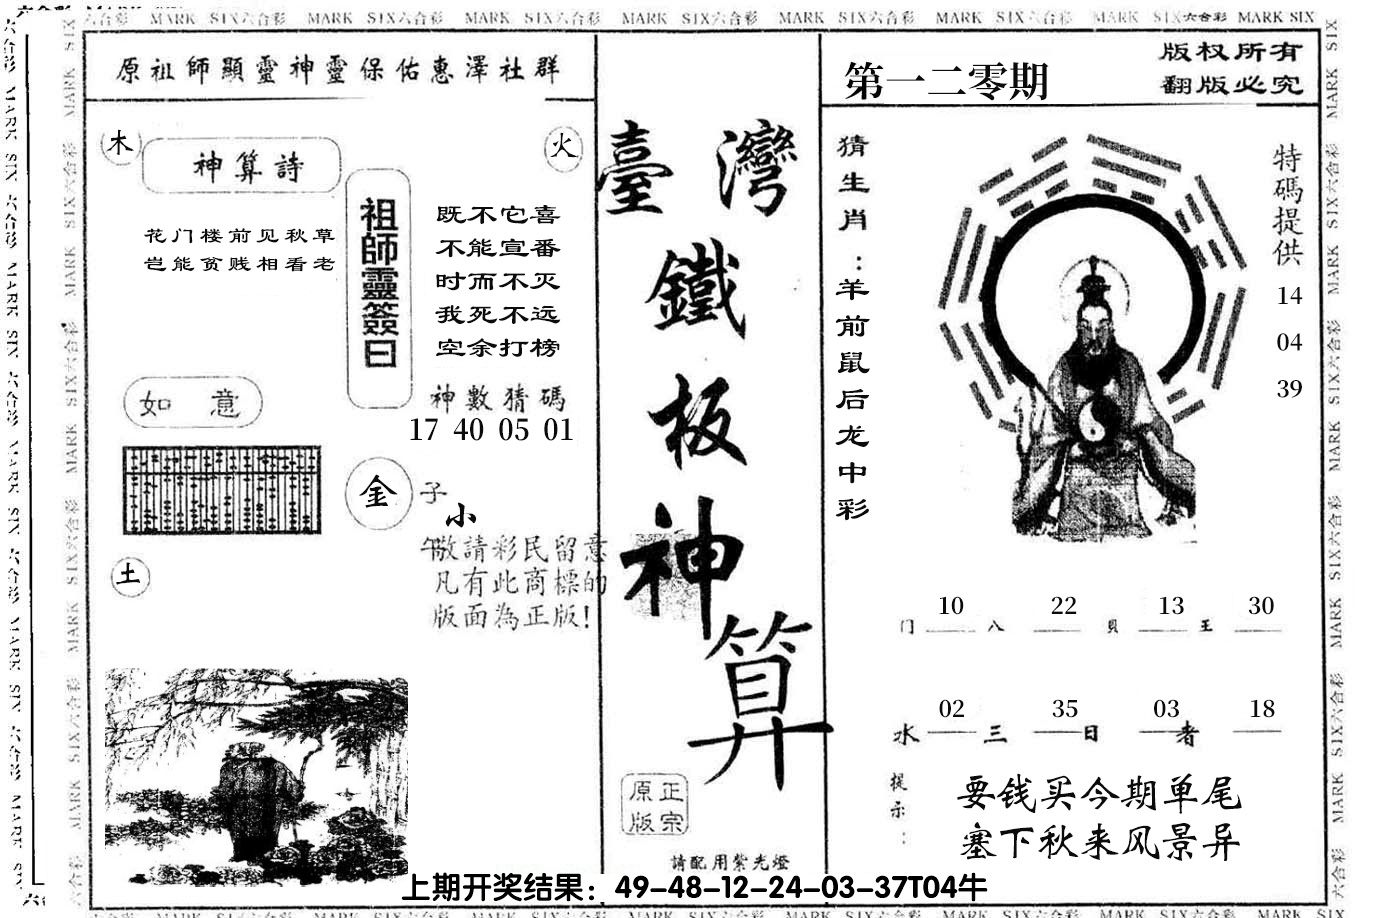 六合彩 MARK SIX六合彩 MARK SIX六合彩 MARK SIX六合彩 MARK SIX六合彩 MARK SIX六合彩 MARK SIX六合彩 MARK SIX六合彩 MARK SIX
原祖師顯靈神靈保佑惠澤社群
木
神算詩
火
花门楼前见秋草
岂能贫贱相看老
祖師靈簽曰
既不它喜
不能宣番
时而不灭
我死不远
空余打榜
如意
神數猜碼
17 40 05 01
金
子
小
午
敬請彩民留意
凡有此商標的
版面為正版!
土
臺灣
鐵
板
神
算
正宗
原版
請配用紫光燈
第一二零期
版权所有
翻版必究
猜生肖:羊前鼠后龙中彩
特碼提供
14
04
39
10 22 13 30
门 八 貝 王
02 35 03 18
水 三 日 者
提示:
要钱买今期单尾
塞下秋来风景异
上期开奖结果：49-48-12-24-03-37T04牛